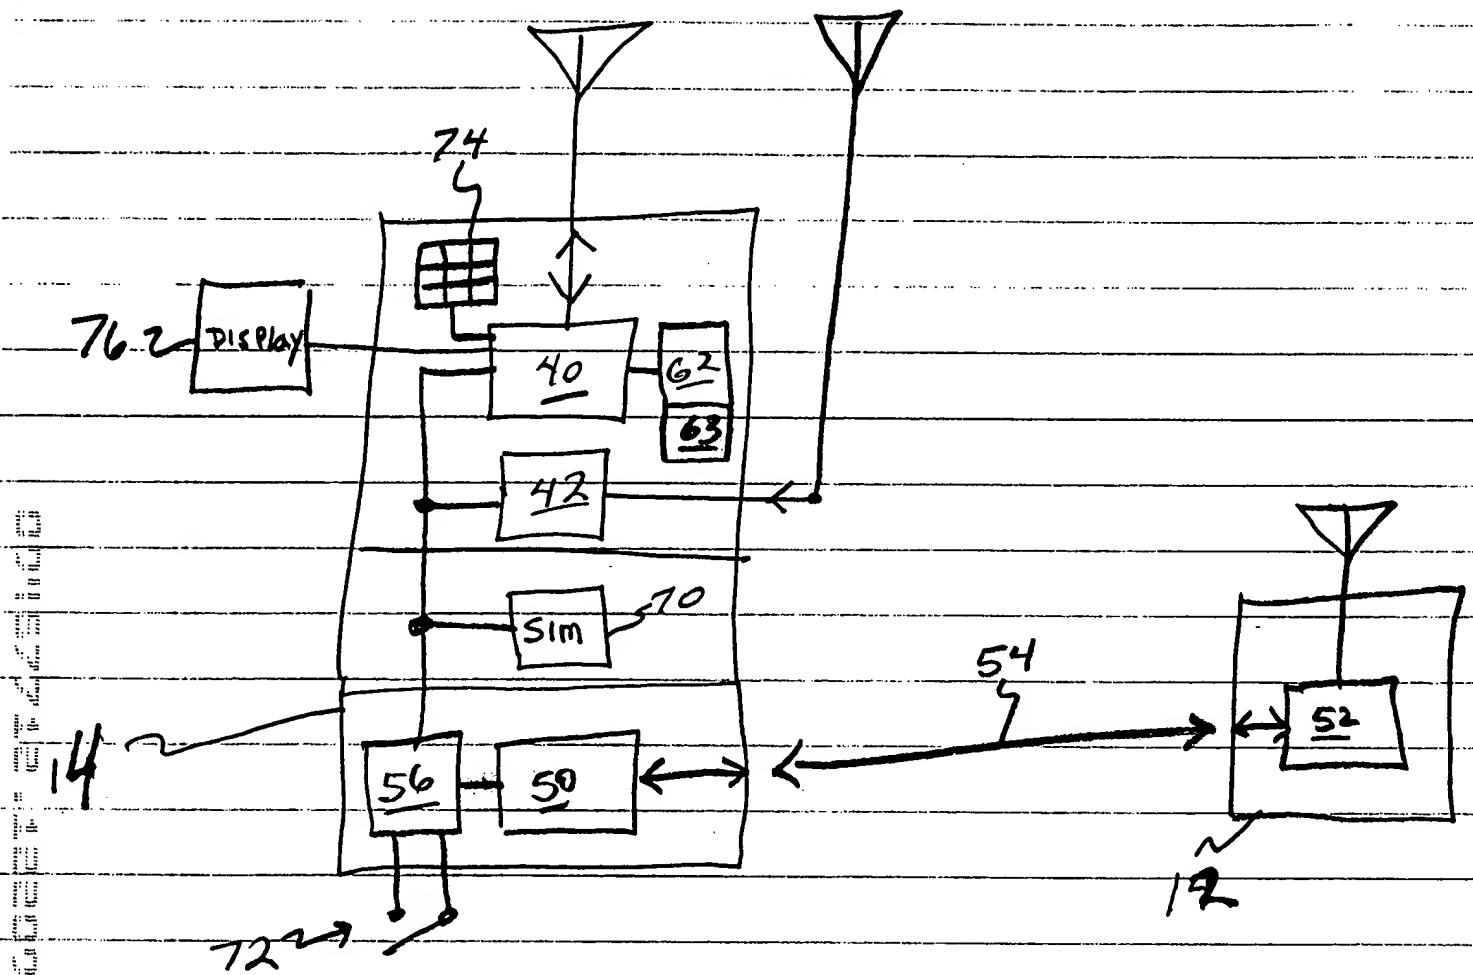 74
76
DISPlaY
40
62
63
42
Sim
70
54
52
14
56
50
12
72